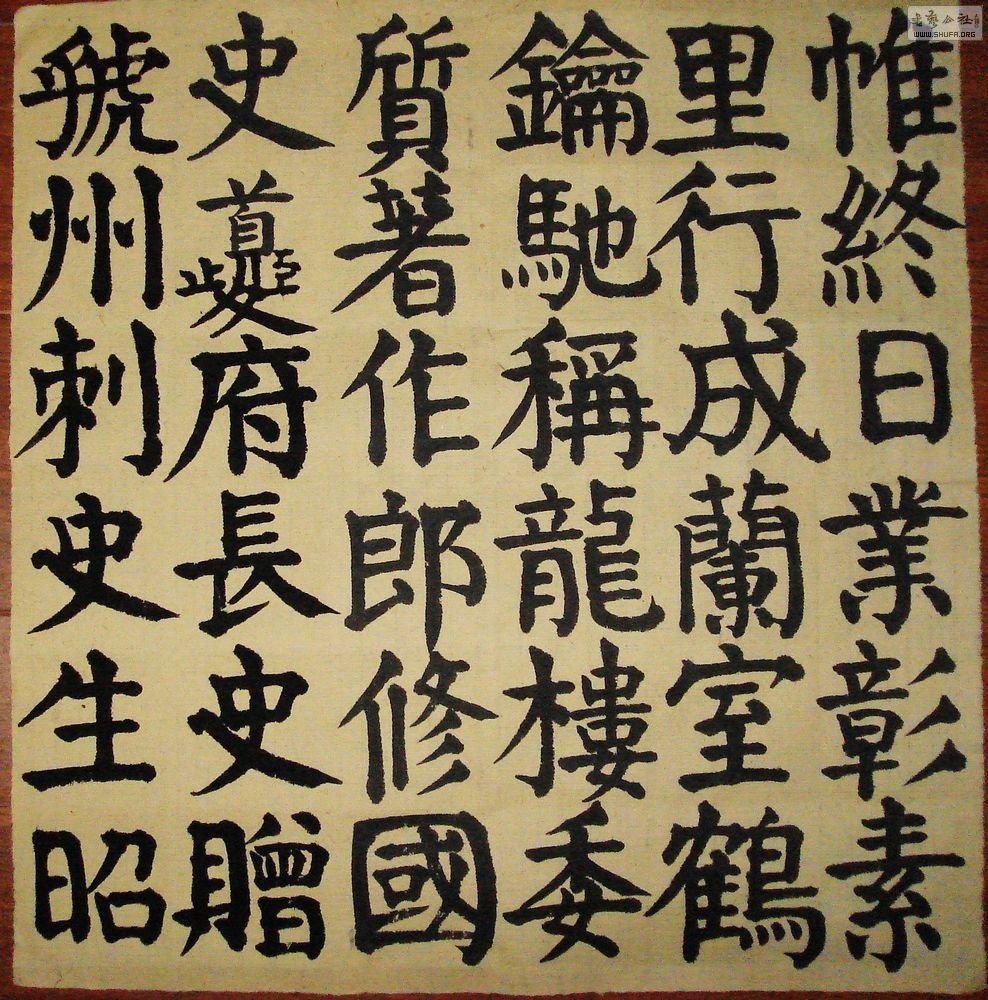 帷終日業彰素
里行成蘭室鶴
鑰馳稱龍樓委
質著作郎修國
史夔府長史贈
虢州刺史生昭
書法公社
WWW.SHUFA.ORG